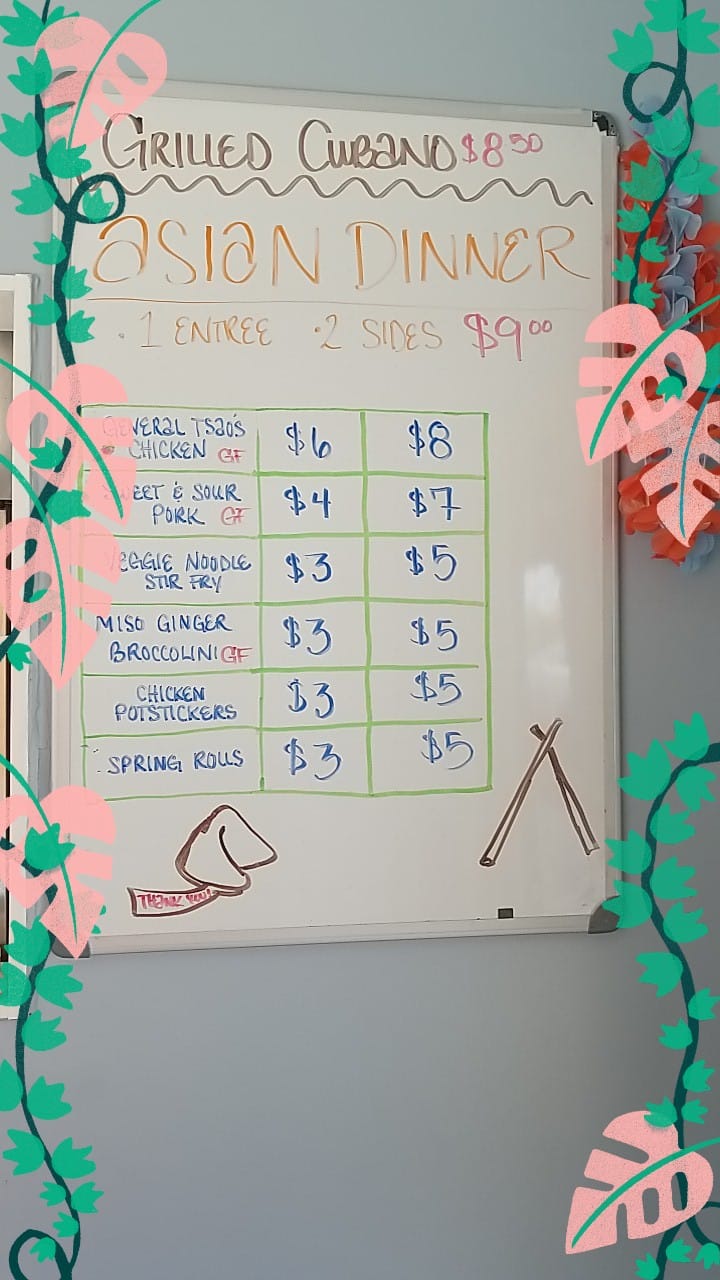 GRILLED CUBANO $8 50
ASIAN DINNER
· 1 ENTREE · 2 SIDES $9 00
GENERAL TSAO'S
CHICKEN GF $6 $8
SWEET & SOUR
PORK GF $4 $7
VEGGIE NOODLE
STIR FRY $3 $5
MISO GINGER
BROCCOLINI GF $3 $5
CHICKEN
POTSTICKERS $3 $5
SPRING ROLLS $3 $5
THANK YOU!